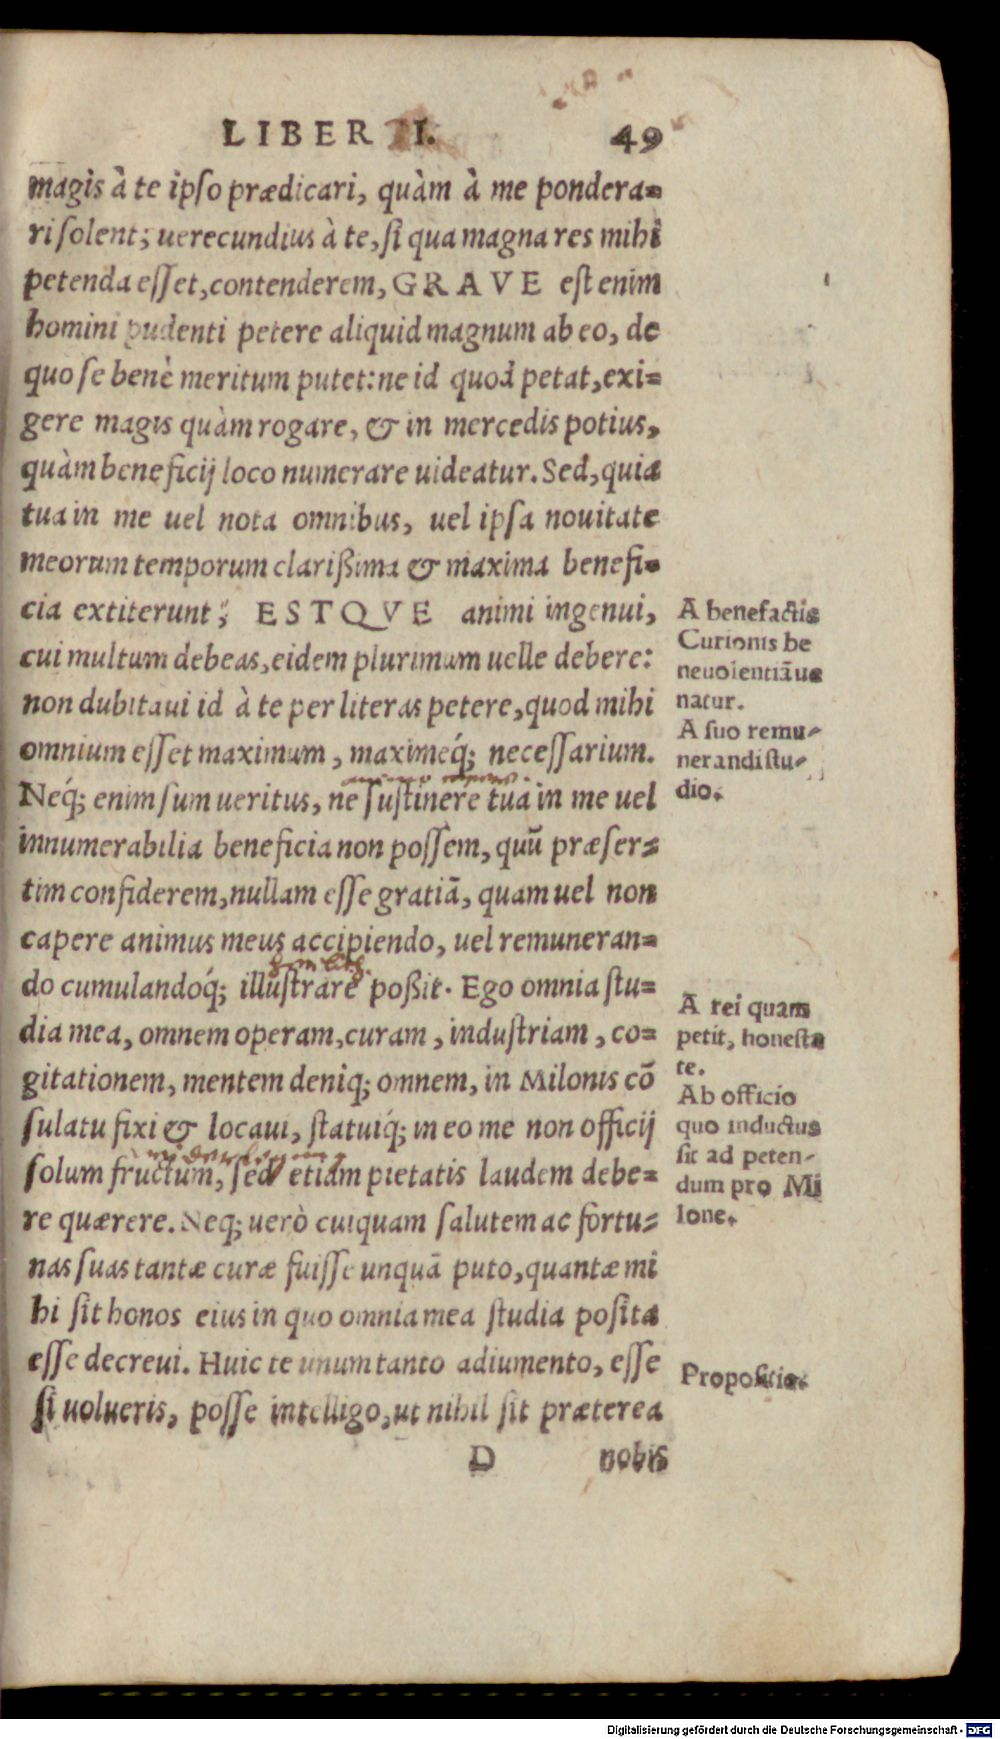 LIBER II. 49
magis à te ipso prædicari, quàm à me pondera-
ri solent; uerecundius à te, si qua magna res mihi
petenda esset, contenderem, GRAVE est enim
homini pudenti petere aliquid magnum ab eo, de
quo se benè meritum putet: ne id quod petat, exi-
gere magis quàm rogare, & in mercedis potius,
quàm beneficij loco numerare uideatur. Sed, quia
tua in me uel nota omnibus, uel ipsa nouitate
meorum temporum clarißima & maxima benefi-
cia extiterunt; ESTQVE animi ingenui,
cui multum debeas, eidem plurimum uelle debere:
non dubitaui id à te per literas petere, quod mihi
omnium esset maximum, maximeq́; necessarium.
Neq́; enim sum ueritus, ne sustinere tua in me uel
innumerabilia beneficia non possem, quū præser-
tim confiderem, nullam esse gratiā, quam uel non
capere animus meus accipiendo, uel remuneran-
do cumulandoq́; illustrare poßit. Ego omnia stu-
dia mea, omnem operam, curam, industriam, co-
gitationem, mentem deniq; omnem, in Milonis cō
sulatu fixi & locaui, statuiq́; in eo me non officij
solum fructum, sed etiam pietatis laudem debe-
re quærere. Neq; uerò cuiquam salutem ac fortu-
nas suas tantæ curæ fuisse unquā puto, quantæ mi
hi sit honos eius in quo omnia mea studia posita
esse decreui. Huic te unum tanto adiumento, esse
si uolueris, posse intelligo, ut nihil sit præterea
D nobis
A benefactis
Curionis be
neuolentiā ue
natur.
A suo remu-
nerandi stu-
dio.
A rei quam
petit, honesta
te.
Ab officio
quo inductus
sit ad peten-
dum pro Mi
lone.
Propositio.
Digitalisierung gefördert durch die Deutsche Forschungsgemeinschaft - DFG